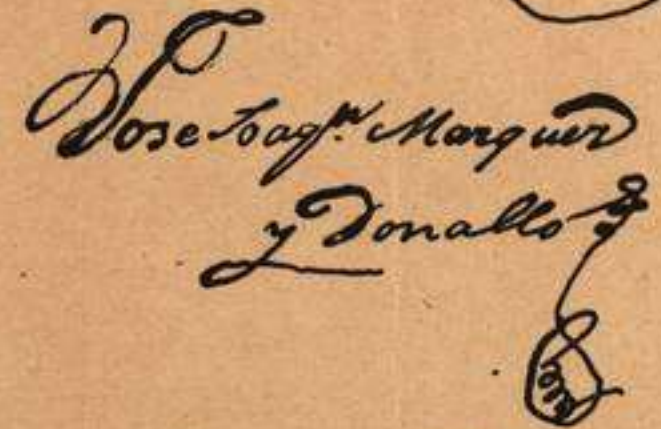 Jose Joaqⁿ Marquez
y Donallo